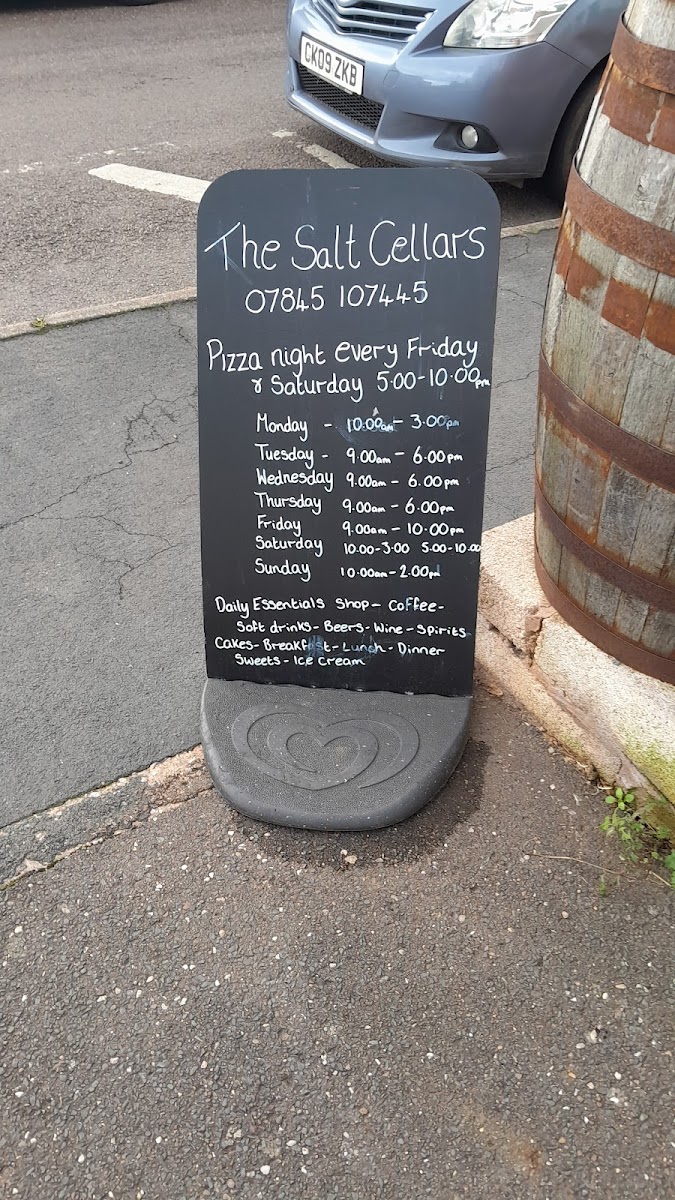 CK09 ZKB
The Salt Cellars
07845 107445
Pizza night every Friday
& Saturday 5.00-10.00pm
Monday - 10.00am - 3.00pm
Tuesday - 9.00am - 6.00pm
Wednesday 9.00am - 6.00pm
Thursday 9.00am - 6.00pm
Friday 9.00am - 10.00pm
Saturday 10.00-3.00 5.00-10.00
Sunday 10.00am-2.00pm
Daily Essentials Shop - Coffee -
Soft drinks - Beers - Wine - Spirits
Cakes - Breakfast - Lunch - Dinner
Sweets - Ice cream